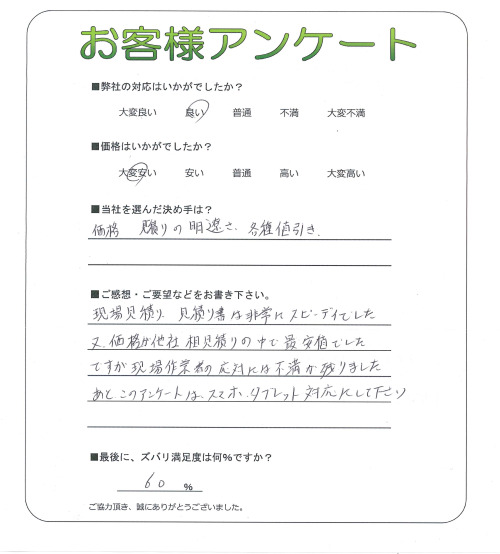 お客様アンケート
■弊社の対応はいかがでしたか？
大変良い 良い 普通 不満 大変不満
■価格はいかがでしたか？
大変安い 安い 普通 高い 大変高い
■当社を選んだ決め手は？
価格 見積りの明速さ、各種値引き、
■ご感想・ご要望などをお書き下さい。
現場見積り、見積り書は非常にスピーディでした
又、価格が他社相見積りの中で最安値でした
ですが現場作業者の応対には不満が残りました
あとこのアンケートは、スマホ、タブレット対応にして下さい
■最後に、ズバリ満足度は何％ですか？
60 ％
ご協力頂き、誠にありがとうございました。